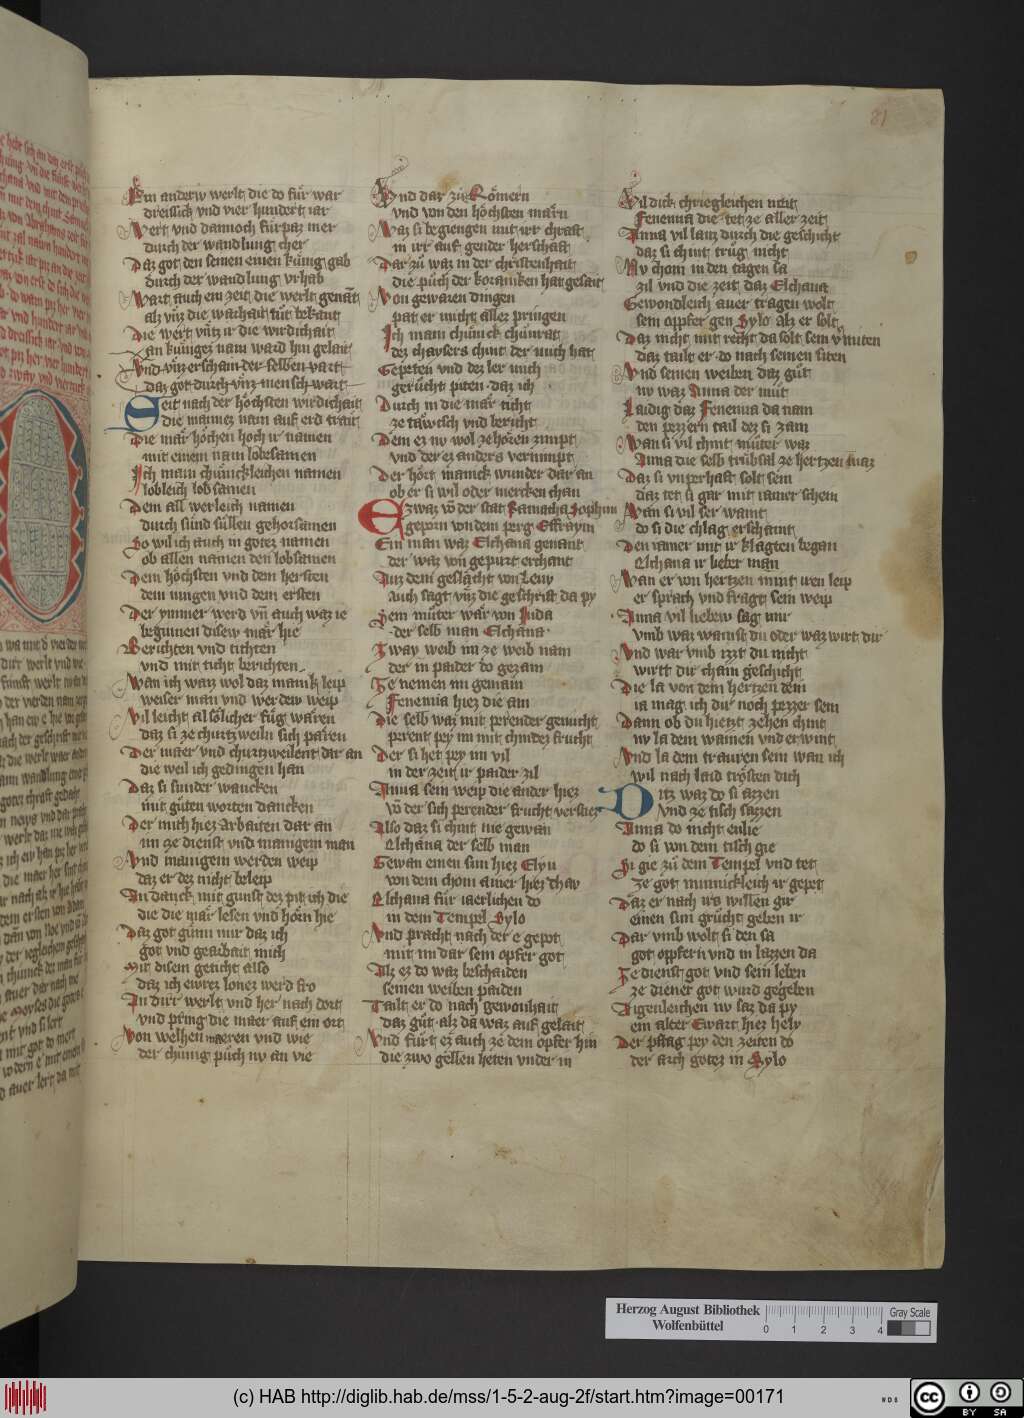 81
Ein anderiv werlt die do für war
dreissich vnd vier hundert iar
Wert vnd dannoch fürpaz mer
durch der wandlung cher
Daz got den seinen einen künig gab
durch der wandlung vrhab
Wart auch ein zeit die werlt genant
alz vnz die warhait tüt bekant
Die wert vntz ir die wirdichait
an künigez nam ward hin gelait
Vnd vnz erscham der selben vart
daz got durch vnz mensch wart
Seit nach der höchsten wirdichait
die mannez nam auf erd trait
Die mär höchen hoch ir namen
mit einem nam lobesamen
Ich main chünickleichen namen
lobleich lobsamen
Dem all werleich namen
durch sünd süllen gehorsamen
So wil ich auch in gotez namen
ob allen namen den lobsamen
Dem höchsten vnd dem hersten
dem iungen vnd dem ersten
Der ymmer werd vn auch waz ie
beginnen disew mär hie
Berichten vnd tichten
vnd mit ticht berichten
Wan ich waiz wol daz manik leip
weiser man vnd werdew weip
Vil leicht al sölicher füg waren
daz si ze churtzweiln sich paren
Der mær vnd churtzweilent dar an
die weil ich gedingen han
Daz si sunder wancken
mit güten worten dancken
Der mich hiez arbaiten dar an
im ze dienst vnd manigem man
Vnd manigem werden weip
daz er dez nicht beleip
In danck mit gunst dez pit ich die
die die mär lesen vnd hörn hie
Daz got günn mir daz ich
got vnd gearbait mich
Mit disem geticht also
daz ich ewrez lonez werd fro
In dirr werlt vnd her nach dort
vnd pring die maer auf ein ort
Von welhen maeren vnd wie
der chünig püch nv an vie
Vnd daz zü Römern
vnd von den höchsten märn
Waz si begiengen mit irr chraft
in irr auf gender herschaft
Dar zü waz in der christenhait
die püch der koraniken hat gesait
Von gewaren dingen
pat er micht allez pringen
Ich main chünick chünrat
dez chaysers chint der mich hat
Gepeten vnd dez ler mich
gerücht piten daz ich
Durch in die mär ticht
ze tawtsch vnd bericht
Dem ez nv wol ze hören zimpt
vnd der ez anders vernimpt
Der hört manick wunder dar an
ob er si wil oder mercken chan
Ez waz vo der stat Ramacha Sophim
geporn von dem perg Effraym
Ein man waz Elchana genant
der waz von gepurt erchant
Auz dem geslächt von Levy
auch sagt vnz die geschrift da py
Sein müter wär von Juda
der selb man Elchana
Zway weib im ze weib nam
der in paider do gezam
Ze nemen im gemain
Fenenna hiez die ain
Die selb waz mit perender genücht
perent pey im mit chindez frucht
Der si het pey im vil
in der zeit ir paider zil
Anna sein weip die ander hiez
vo der sich perender frucht verstiez
Also daz si chint nie gewan
Elchana der selb man
Gewan einen sun hiez Elyu
von dem chom ainer hiez thav
Elchana für iaerlichen do
in dem Tempel Sylo
Vnd pracht nach der e gepot
mit im dar sein opfer got
Alz ez do waz beschaiden
seinen weiben paiden
Tailt er do nach gewonhait
daz güt alz da waz auf gelait
Vnd fürt ez auch ze dem opfer hin
die zwo gellen heten vnder in
Vil dick chriegleichen neit
Fenenna die tet ze aller zeit
Anna vil laitz durch die geschicht
daz si chint trüg nicht
Nv chom in den tagen sa
zil vnd die zeit daz Elchana
Gewondleich auer tragen wolt
sein oppfer gen Sylo alz er solt
Daz nicht mit recht da solt sein vmiten
daz tailt er do nach seinen siten
Vnd seinen weiben daz güt
nv waz Anna der müt
Laidig daz Fenenna da nam
den pezzern tail dez si zam
Wan si vil chint müter waz
Anna die selb trübsal ze hertzen maz
Daz si vnperhaft solt sein
daz tet si gar mit iamer schein
Wan si vil ser waint
do si die chlag erschaint
Den iamer mit ir klagten began
Elchana ir lieber man
Wan er von hertzen mint iren leip
er sprach vnd fragt sein weip
Anna vil liebew sag mir
vmb waz wainst du oder waz wirt dir
Vnd war vmb izzt du nicht
wirtt dir chain geschicht
Die la von dem hertzen dein
ia mag ich dir noch pezzer sein
Dann ob du hietzt zehen chint
nv la dem wainen vnd erwint
Vnd la dein trauren sein wan ich
wil nach laid trösten dich
Ditz waz do si azzen
vnd ze tisch sazzen
Anna do nicht enlie
do si von dem tisch gie
Si gie zü dem Tempel vnd tet
ze got minnickleich ir gepet
Daz er nach irs willen gir
einen sun grücht geben ir
Dar vmb wolt si den sa
got opfern vnd in lazzen da
Ze dienst got vnd sein leben
ze diener got würd gegeben
Aigenleichen nv saz da py
ein alter Ewart hiez Hely
Der pflag pey den zeiten do
der arch gotez in Sylo
Herzog August Bibliothek
Wolfenbüttel
0 1 2 3 4
Gray Scale
(c) HAB http://diglib.hab.de/mss/1-5-2-aug-2f/start.htm?image=00171
WDB
cc BY SA